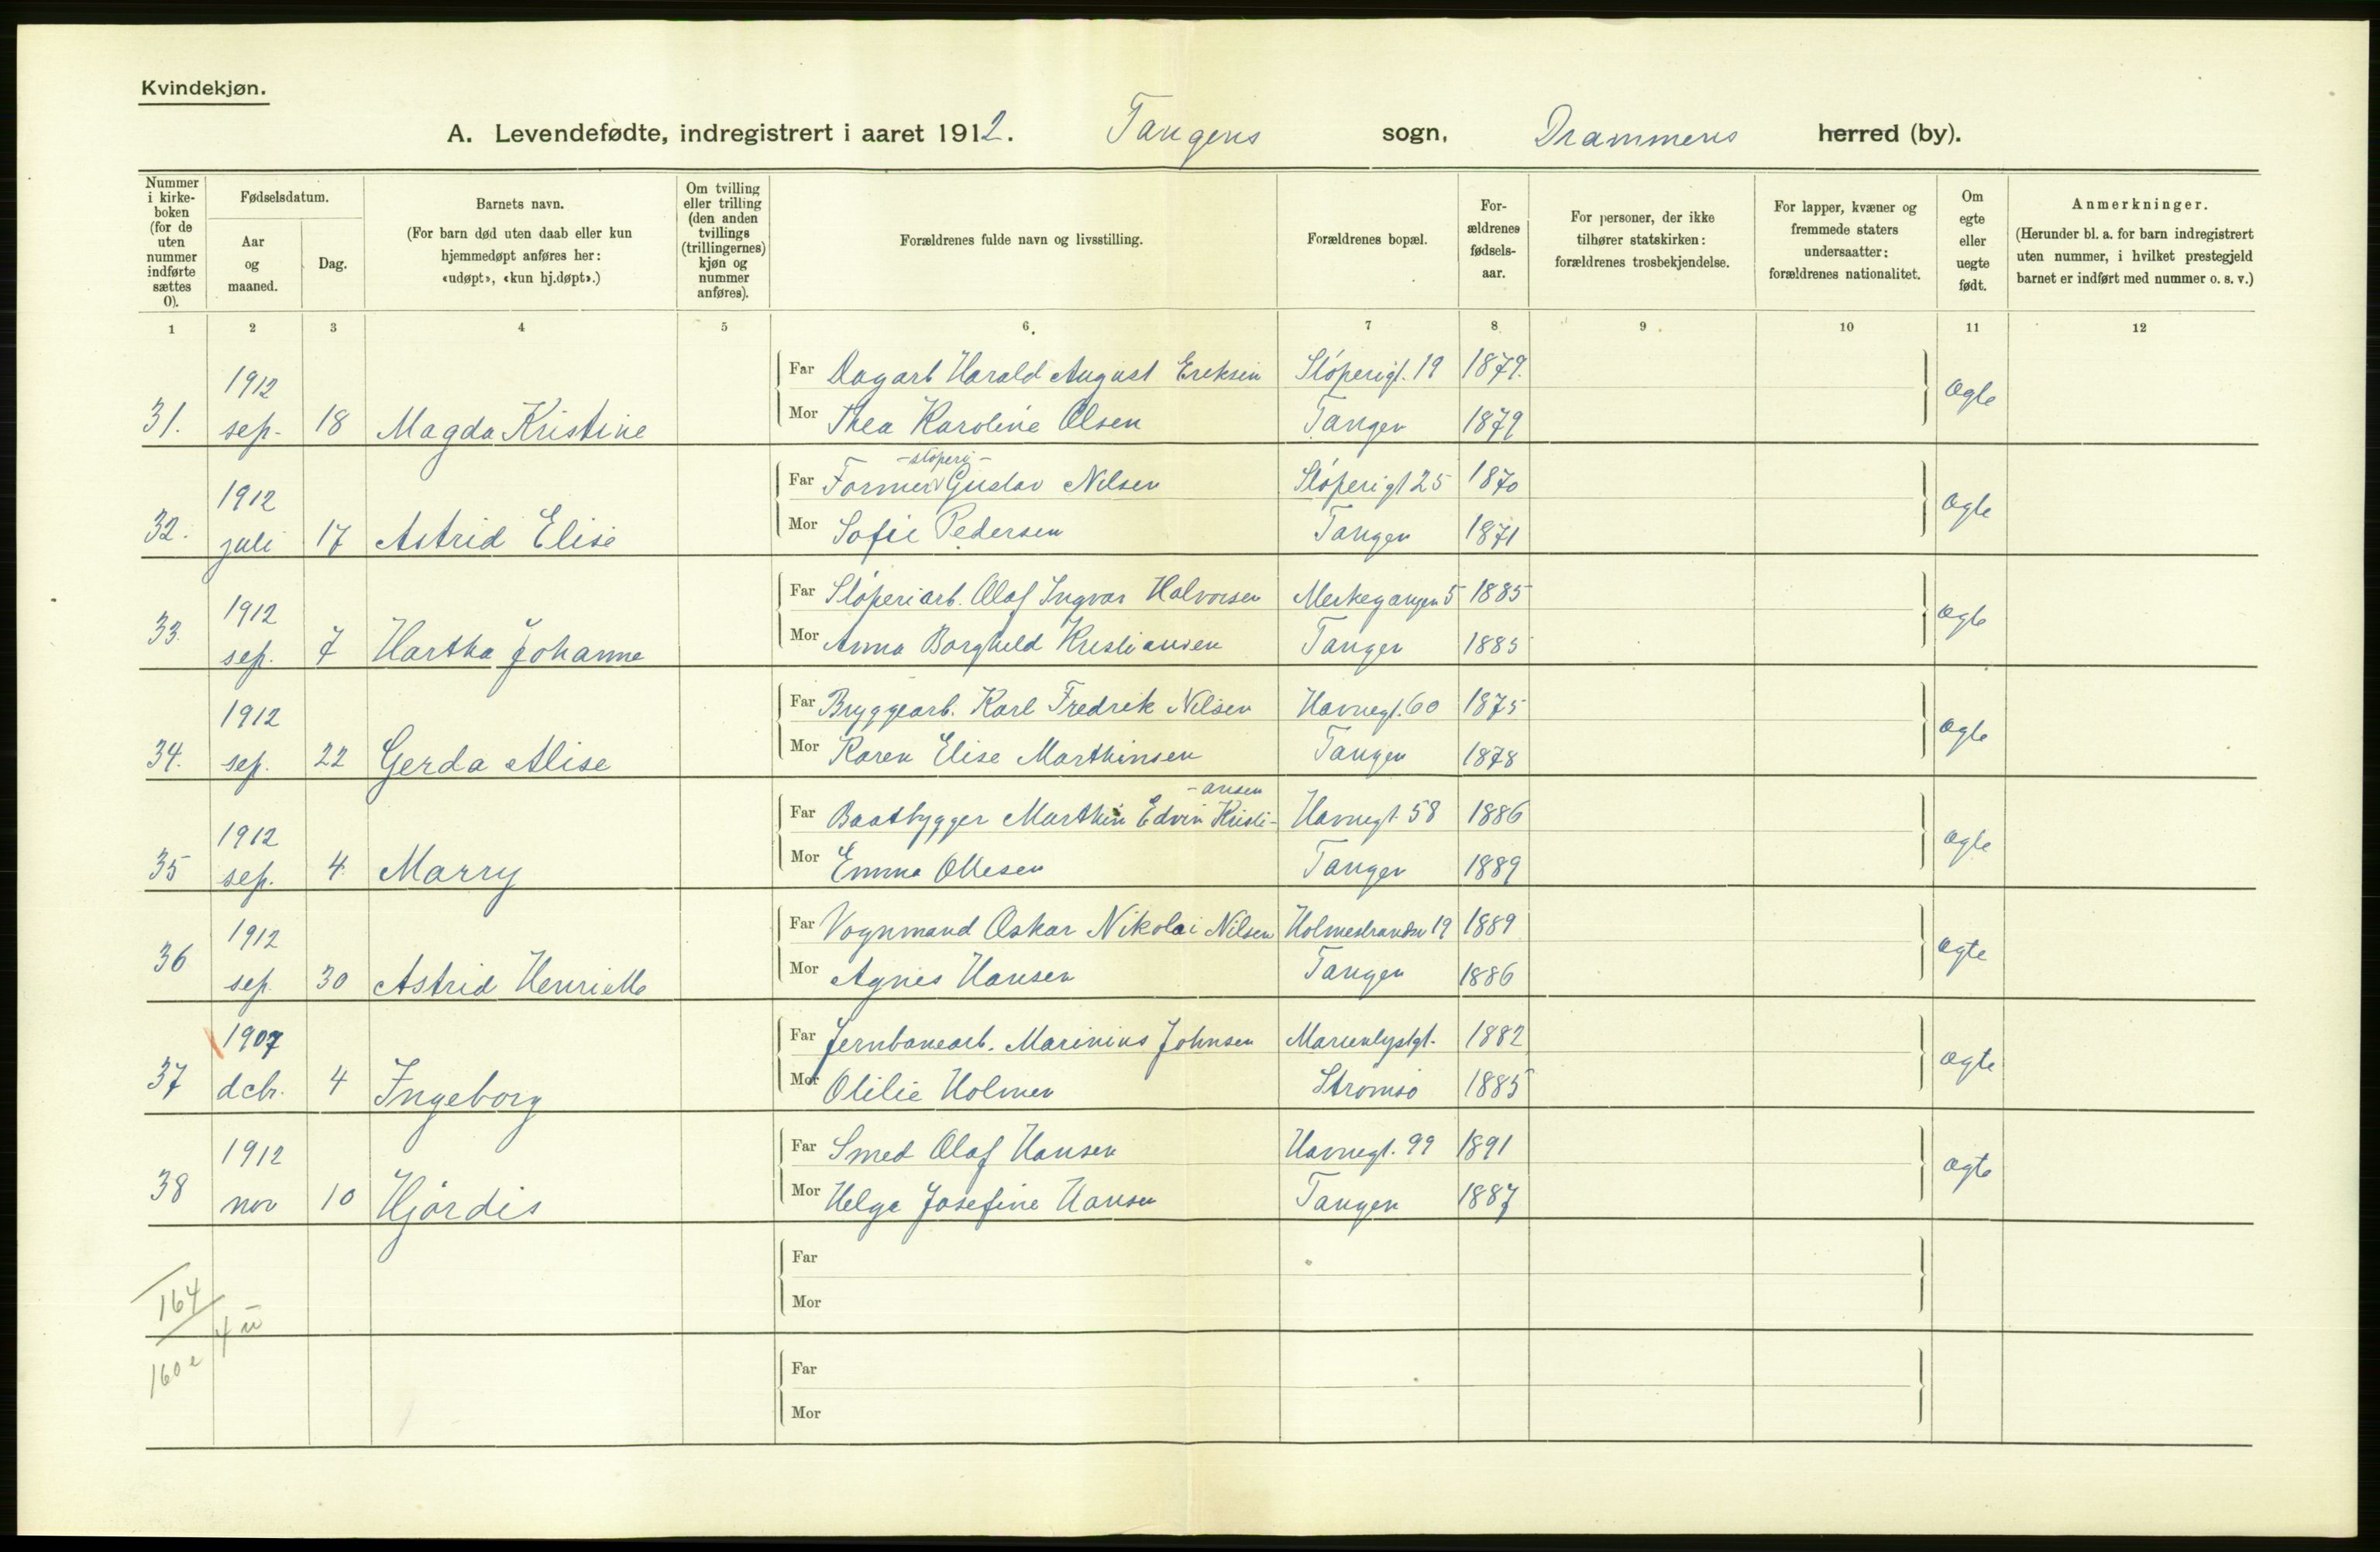 Kvindekjøn.
A. Levendefødte, indregistrert i aaret 1912. Tangens sogn, Drammens herred (by).
Nummer i kirke-boken (for de uten nummer indførte sættes 0).
Fødselsdatum.
Aar og maaned.
Dag.
Barnets navn.
(For barn død uten daab eller kun hjemmedøpt anføres her: «udøpt», «kun hj.døpt».)
Om tvilling eller trilling (den anden tvillings (trillingernes) kjøn og nummer anføres).
Forældrenes fulde navn og livsstilling.
Forældrenes bopæl.
For-ældrenes fødsels-aar.
For personer, der ikke tilhører statskirken: forældrenes trosbekjendelse.
For lapper, kvæner og fremmede staters undersaatter: forældrenes nationalitet.
Om egte eller uegte født.
Anmerkninger.
(Herunder bl. a. for barn indregistrert uten nummer, i hvilket prestegjeld barnet er indført med nummer o. s. v.)
1 2 3 4 5 6. 7 8 9 10 11 12
1912 Far Dagarb Harald August Eriksen Støperigt. 19 1879.
31. sep. 18 Magda Kristine Mor Thea Karoline Olsen Tangen 1879 Ægte
-støperi-
1912 Far Former Gustav Nilsen Støperigt 25 1870
32. juli 17 Astrid Elise Mor Sofie Pedersen Tangen 1871 Ægte
1912 Far Støperiarb. Olaf Ingvar Halvorsen Merkegangen 5 1885
33. sep. 7 Hartha Johanne Mor Anna Borghild Kristiansen Tangen 1885 Ægte
1912 Far Bryggearb. Karl Fredrik Nilsen Havnegt. 60 1875
34. sep. 22 Gerda Alise Mor Karen Elise Marthinsen Tangen 1878 Ægte
-ansen
1912 Far Baatbygger Marthin Edvin Kristi- Havnegt. 58 1886
35 sep. 4 Marry Mor Emma Ottesen Tangen 1889 Ægte
1912 Far Vognmand Oskar Nikolai Nilsen Holmestrandsv 19 1889
36 sep. 30 Astrid Henriette Mor Agnes Hansen Tangen 1886 Ægte
1907 Far Jernbanearb. Marinius Johnsen Marienlystgt. 1882
37 dcbr. 4 Ingeborg Mor Otilie Holmen Strømsø 1885 Ægte
1912 Far Smed Olaf Hansen Havnegt. 99 1891
38 nov 10 Hjørdis Mor Helga Josefine Hansen Tangen 1887 Ægte
Far
164
Mor
4 u
160 e
Far
Mor